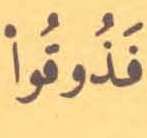 فَذُوقُواْ